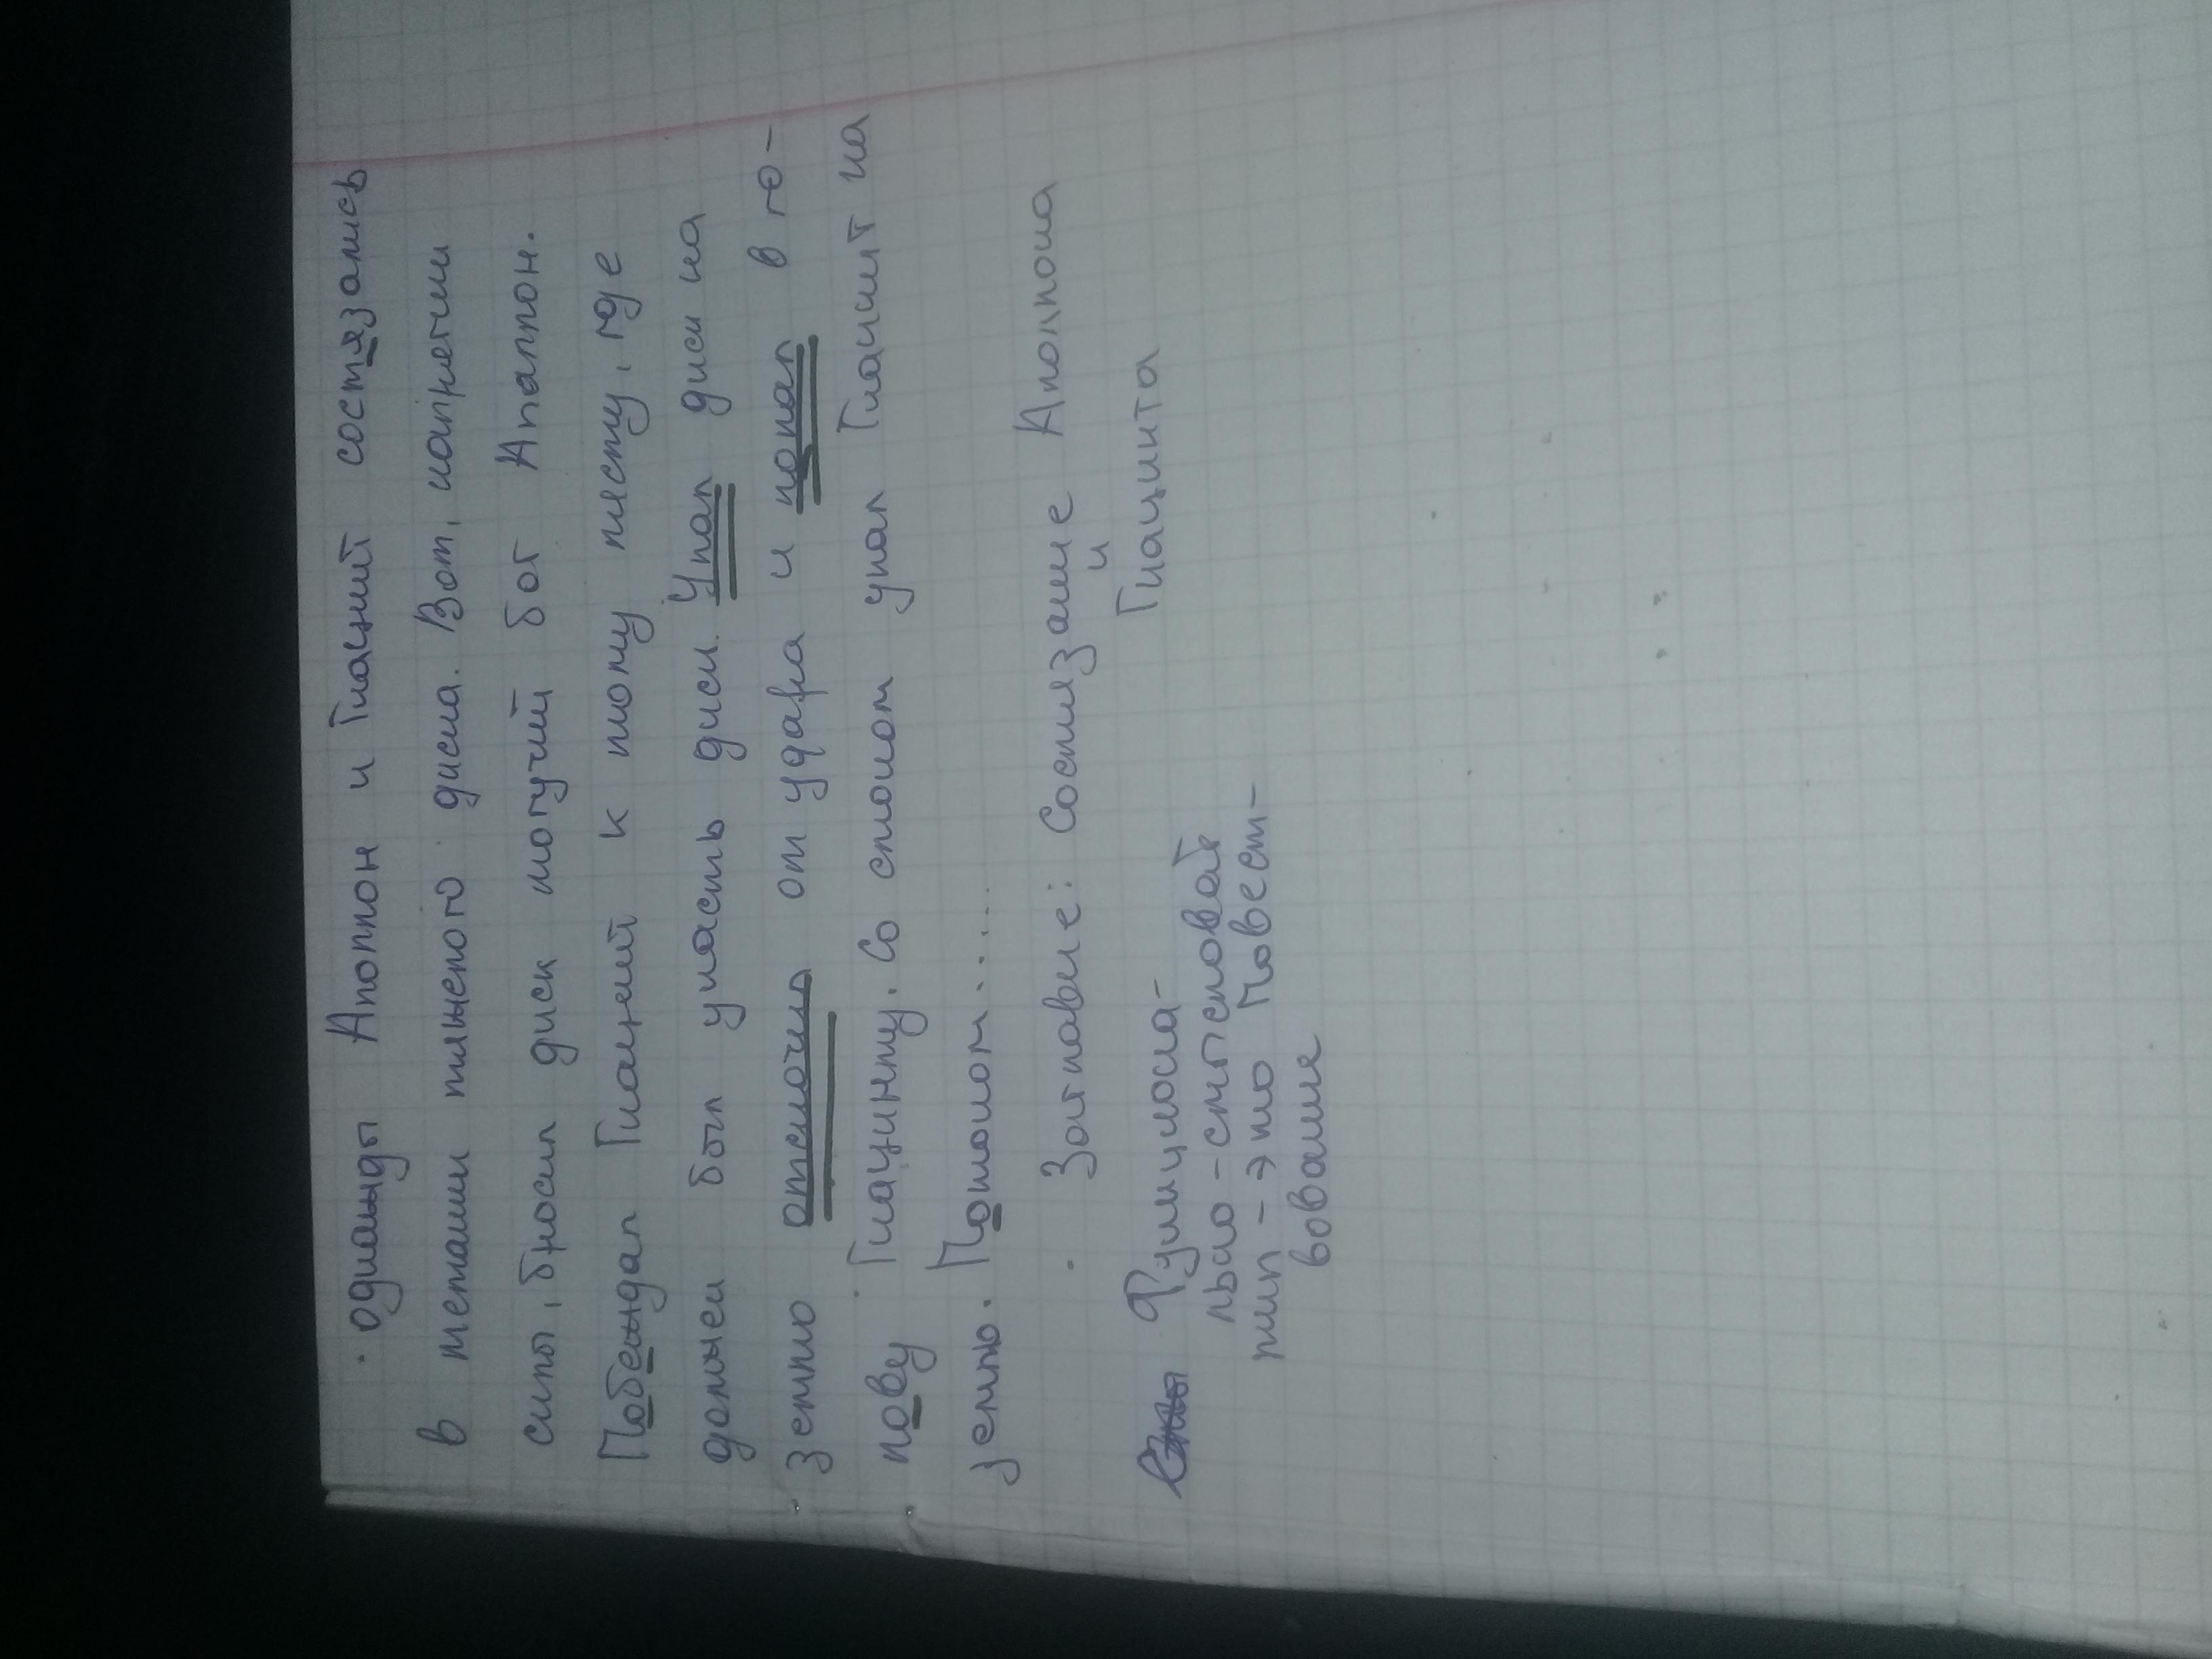 однажды Аполлон и Гиацинт состязались
в метании тяжелого диска. Вот, напрягши
силы, бросил диск могучий бог Аполлон.
Побежал Гиацинт к тому месту, где
должен был упасть диск. Упал диск на
землю отскочил от удара и попал в го-
лову Гиацинту. Со стоном упал Гиацинт на
землю. Потом.....
Заглавие: Состязание Аполлона
и
Гиацинта
Функциона-
льно-смысловой
тип - это Повест-
вование